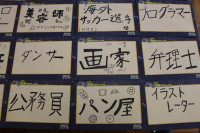 美容師
海外
サッカー選手
プログラマー
ダンサー
画家
弁理士
公務員
パン屋
イラスト
レーター